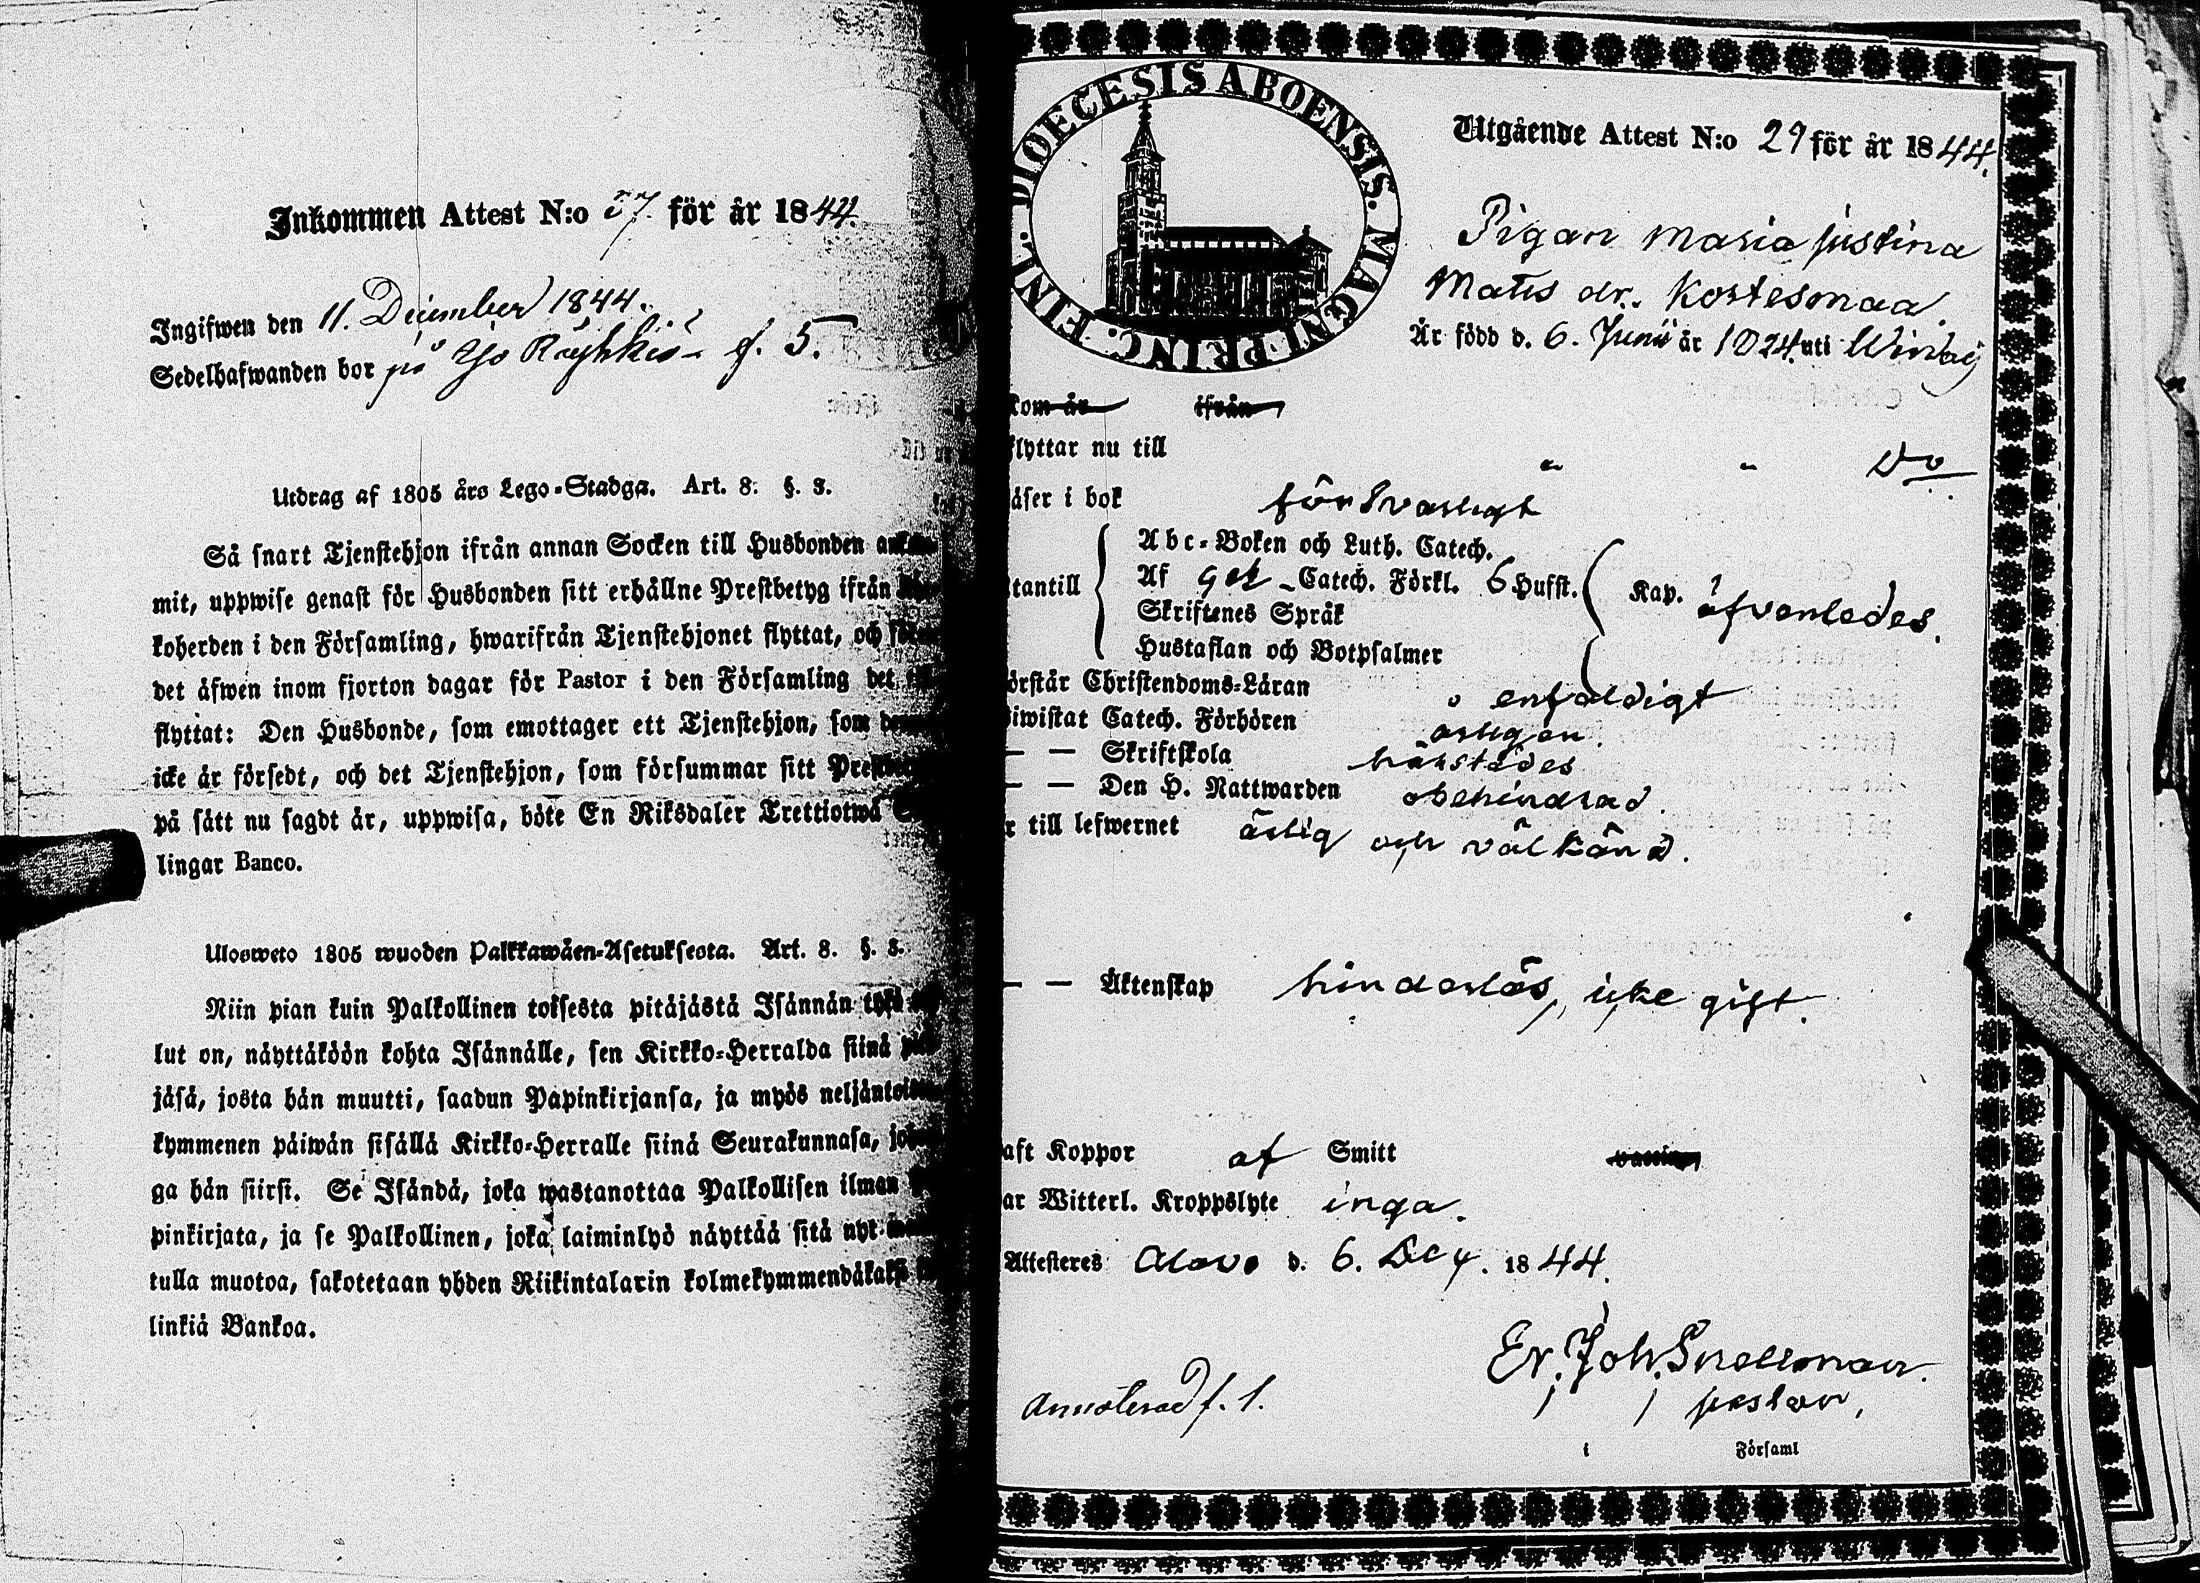 Inkommen Attest N:o 57. för år 1844.
Ingifwen den 11. December 1844.
Sedelhafwanden bor på Yjo Räyhkis f. 5.
Utdrag af 1805 års Lego-Stadga. Art. 8. §. 3.
Så snart Tjenstehjon ifrån annan Socken till Husbonden
mit, uppwise genast för Husbonden sitt erhållne Prestbetyg ifrån
koherden i den Församling, hwarifrån Tjenstehjonet flyttat, och
det äfwen inom fjorton dagar för Pastor i den Församling det
flyttat: Den Husbonde, som emottager ett Tjenstehjon, som
icke är försedt, och det Tjenstehjon, som försummar sitt
på sätt nu sagdt är, uppwisa, böte En Riksdaler Trettiotwå
lingar Banco.
Ulosweto 1805 wuoden Palkkawäen-Asetuksesta. Art. 8. §. 3.
Niin pian kuin Palkollinen toisesta pitäjästä Isännän
lut on, näyttäköön kohta Isännälle, sen Kirkko-Herralda siinä
jäsä, josta hän muutti, saadun Papinkirjansa, ja myös
kymmenen päiwän sisällä Kirkko-Herralle siinä Seurakunnasa,
ga hän siirsi. Se Isändä, joka wastanottaa Palkollisen ilman
pinkirjata, ja se Palkollinen, joka laiminlyö näyttää sitä
tulla muotoa, sakotetaan yhden Riikintalarin
linkiä Bankoa.
DIOECESIS ABOENSIS. MAGNI PRINC. FINL.
Utgående Attest N:o 29 för år 1844.
Pigan Maria Justina
Matts dr. Kortesmaa.
Är född d. 6. Junii år 1824 uti Wirby
kom år ifrån
flyttar nu till " " Do
äser i bok försvarligt
tantill
Abc-Boken och Luth. Catech.
Af Catech. Förkl. 6 Hufst. Kap. äfvenledes.
Skriftenes Språk
Hustaflan och Botpsalmer
örstår Christendoms-Läran enfaldigt
iwistat Catech. Förhören årligen.
— — Skriftskola härstädes
— — Den H. Nattwarden obehindrad.
r till lefwernet ärlig och välkänd.
— — Äktenskap hinderlös, icke gift.
aft Koppor af Smitt
ar Witterl. Kroppslyte inga.
Attesteres Alavo d. 6. 1844.
Er. Joh. Snellman.
pastor,
Annoterad f. 1.
i Församl